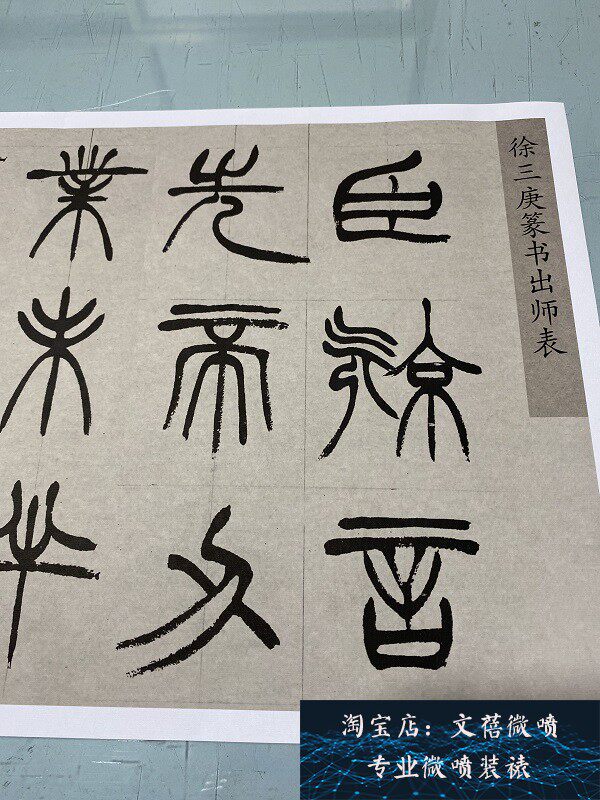 徐三庚篆书出师表
臣亮言
先帝刅
業未半
淘宝店：文蓓微喷
专业微喷装裱